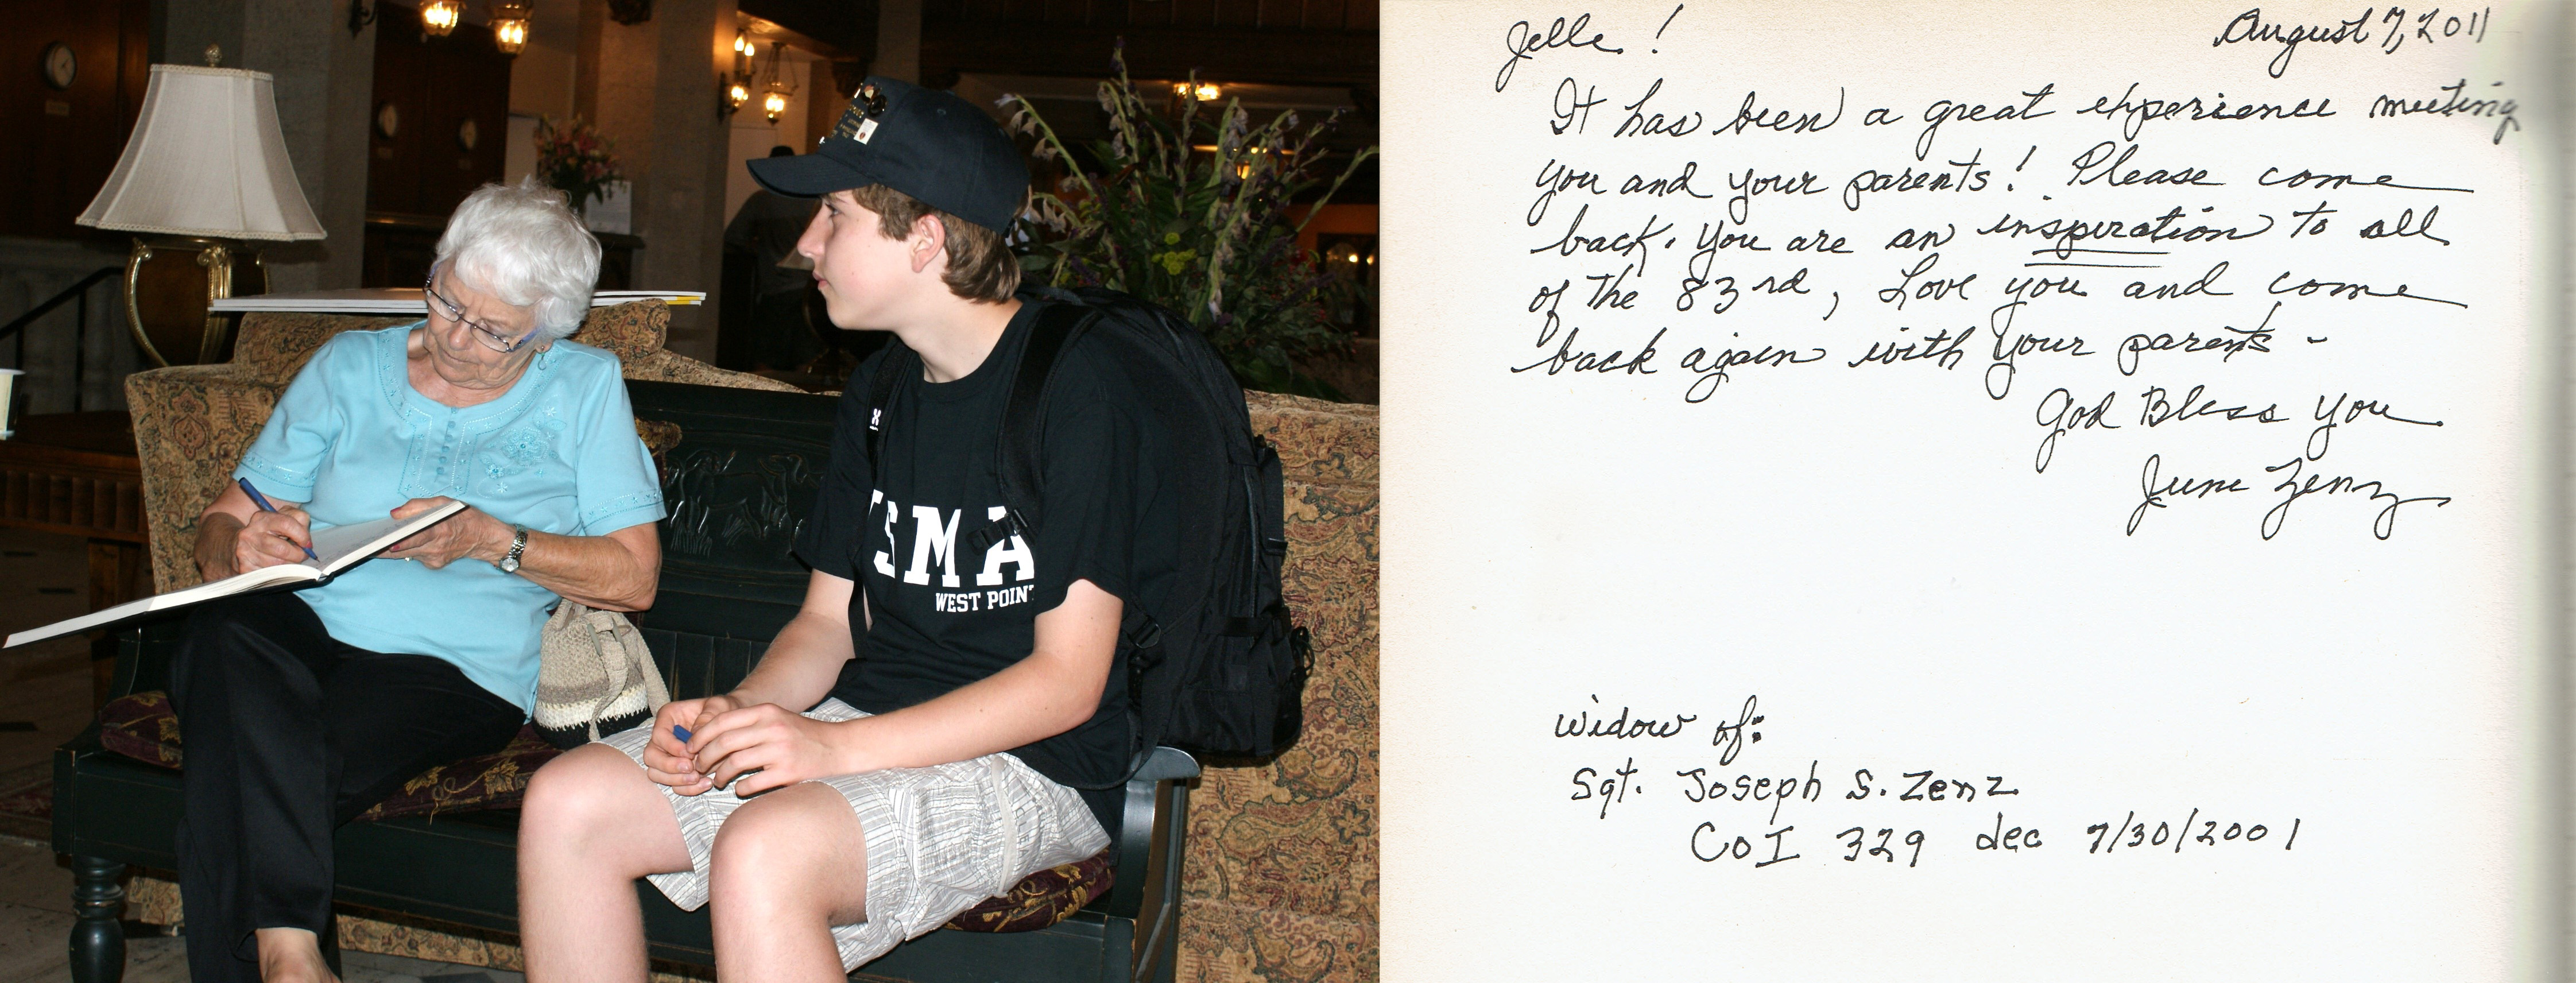 SMA
WEST POINT
Jelle!
August 7, 2011
It has been a great experience meeting
you and your parents! Please come
back. You are an inspiration to all
of the 83rd, Love you and come
back again with your parents -
God Bless You
June Zenz
Widow of:
Sgt. Joseph S. Zenz
Co I 329 dec 7/30/2001